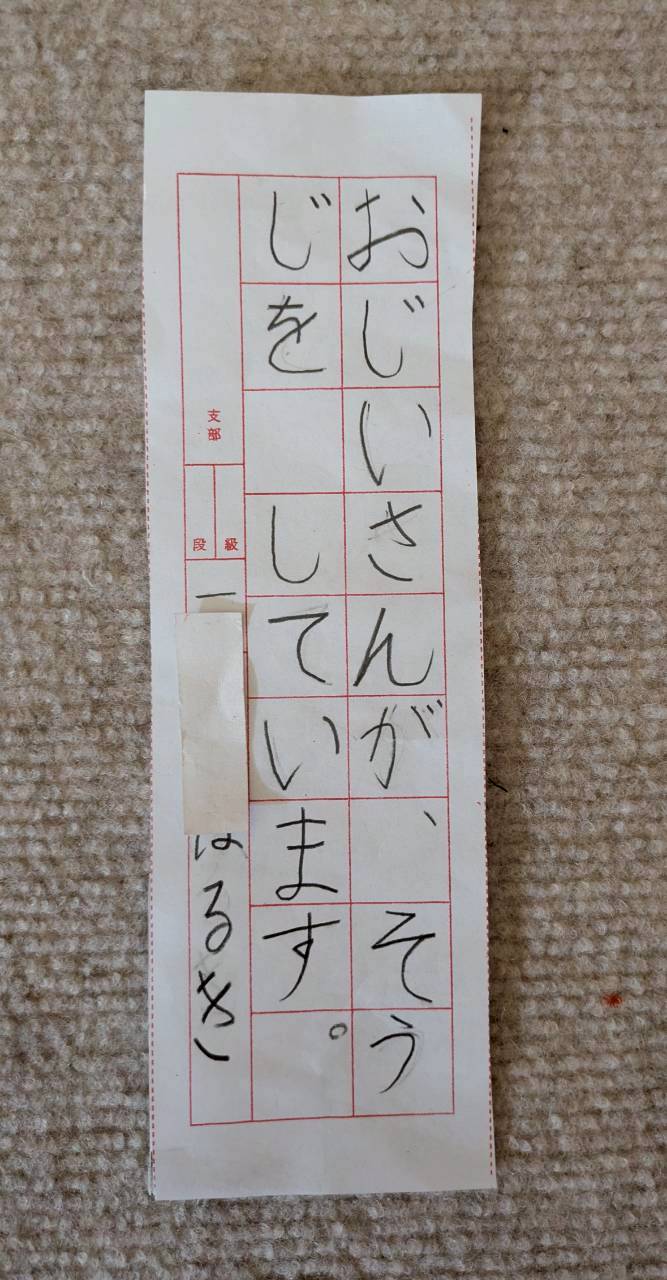 おじいさんが、そう
じを　しています。
支部
級
段
一
はるき